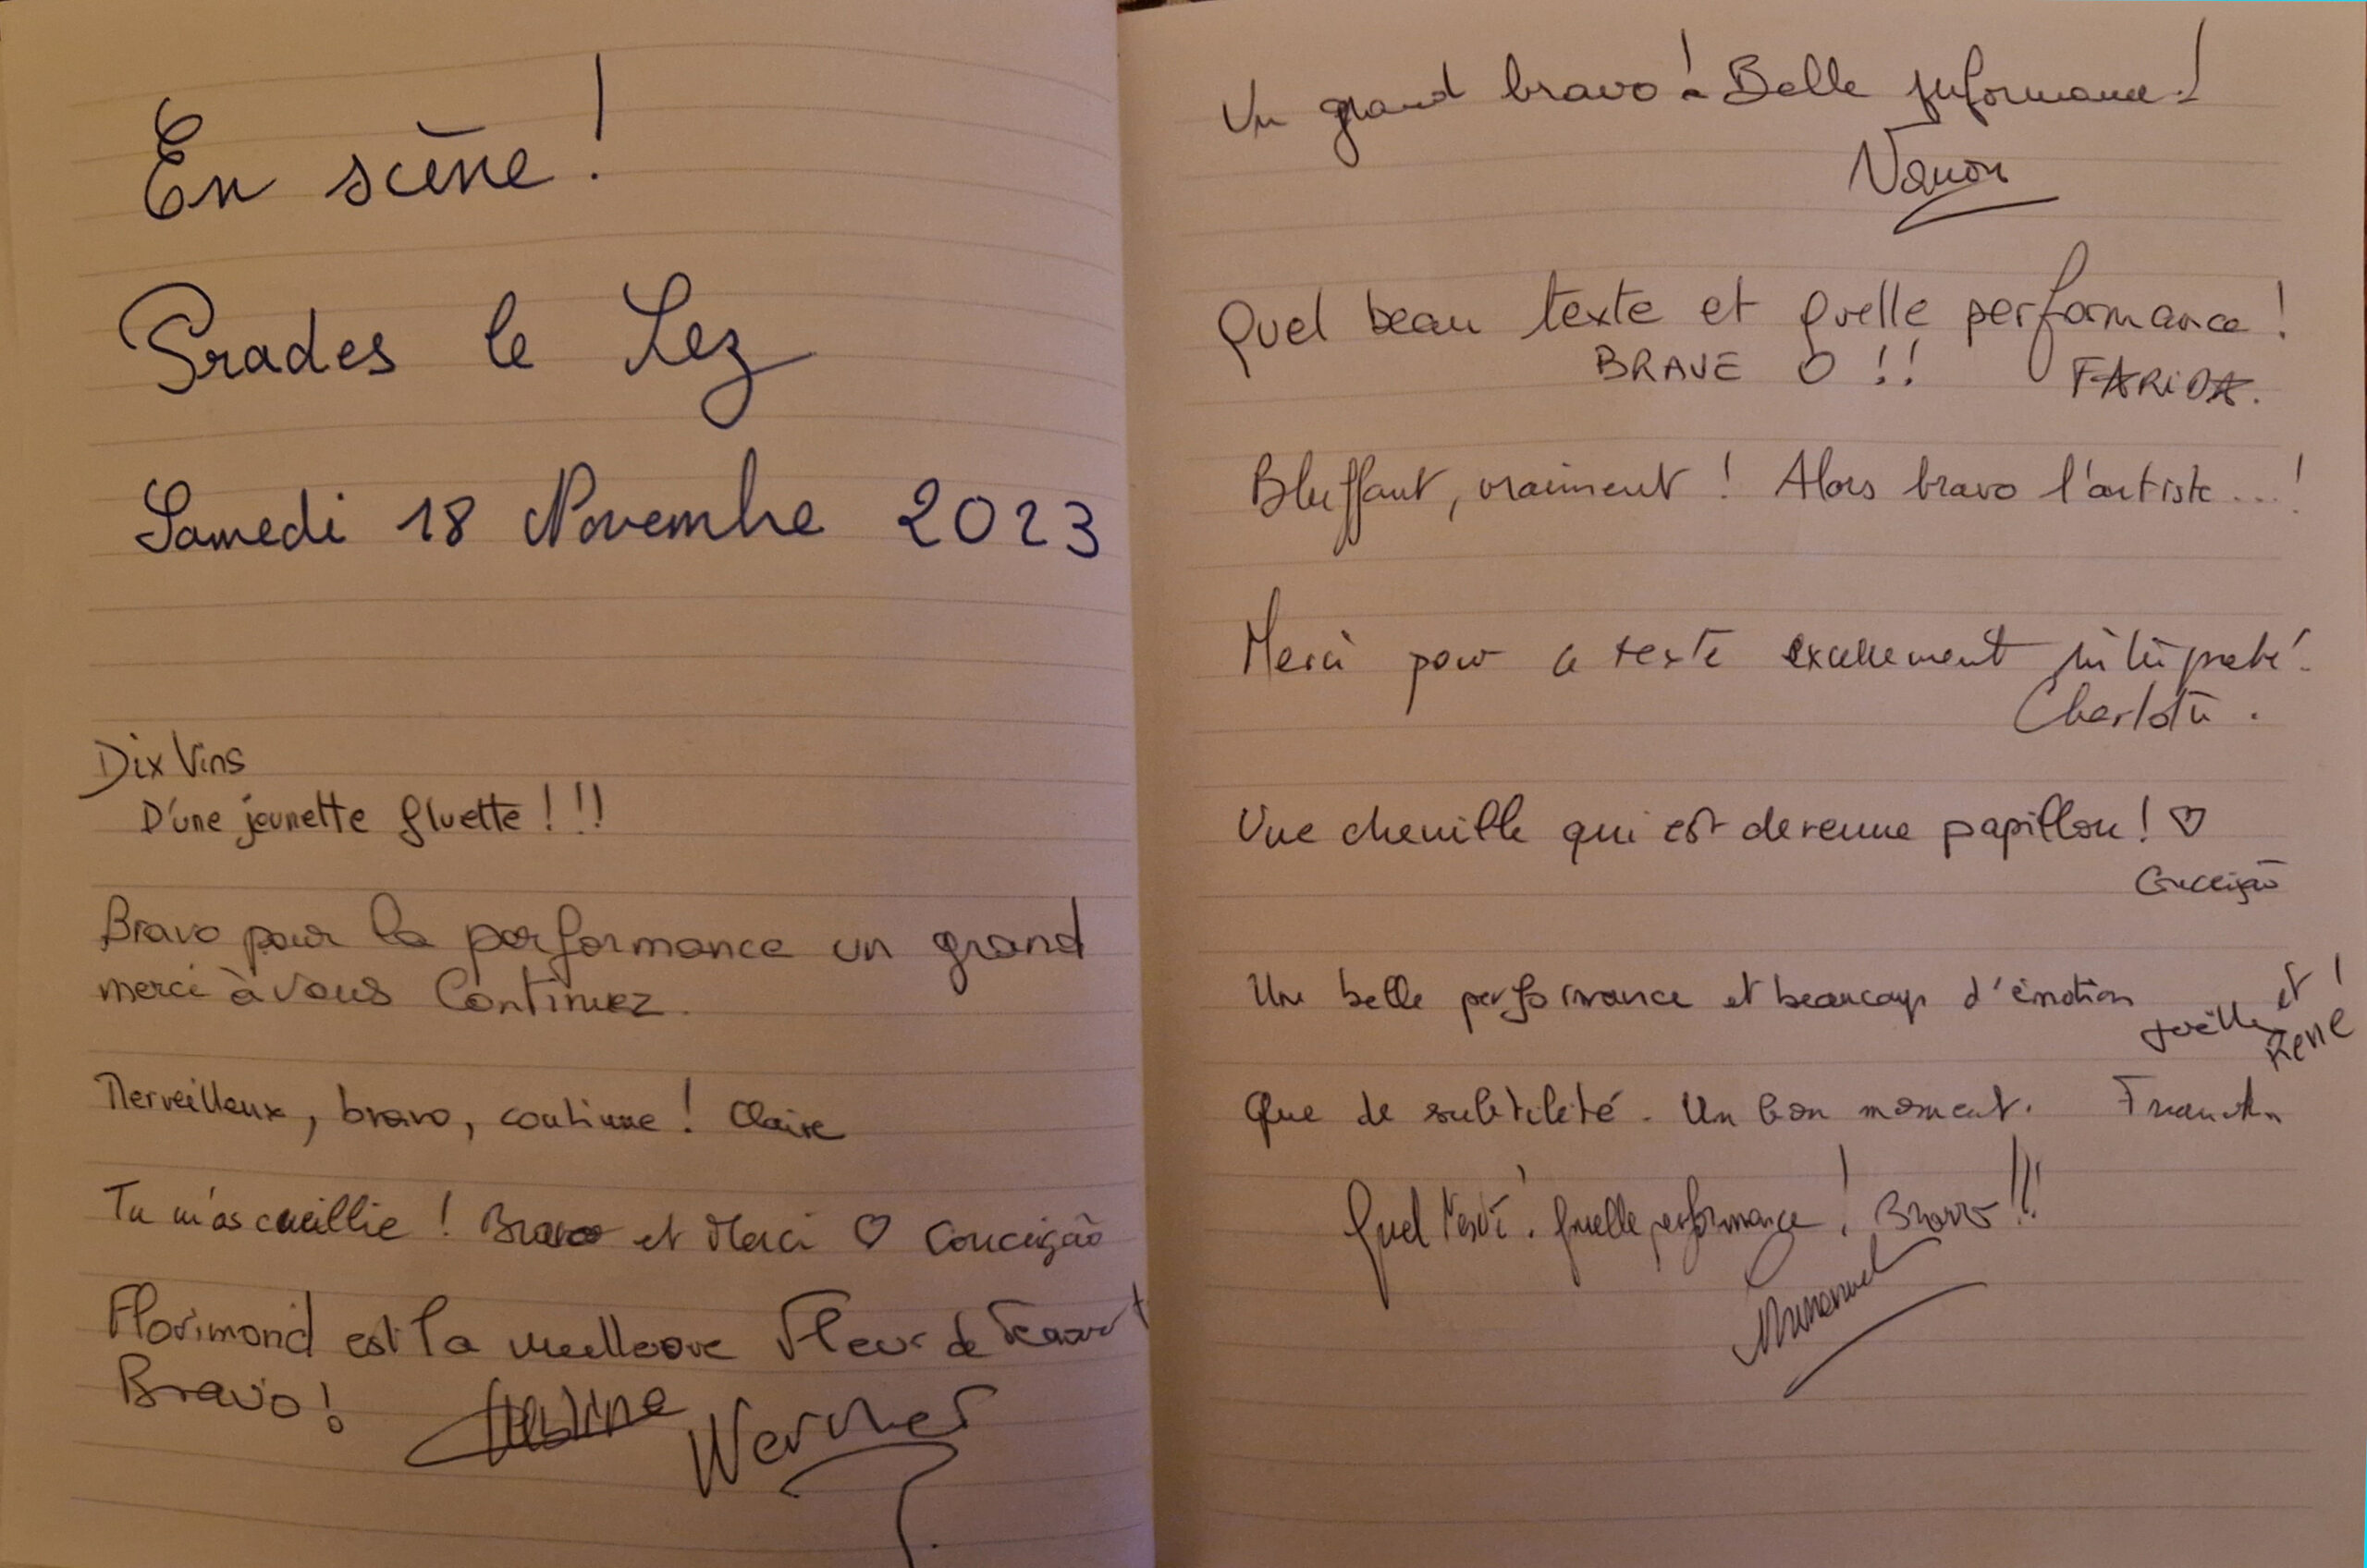 En scène !
Prades le Lez
Samedi 18 Novembre 2023
Dix Vins
D'une jeunette fluette ! ! !
Bravo pour la performance un grand
merci à vous Continuez.
Merveilleux, bravo, continue ! Claire
Tu m'as cueillie ! Bravo et Merci ♡ Conceição
Florimond est la meilleure Fleur de
Bravo ! Werner
Un grand bravo ! Belle performance !
Nanon
Quel beau texte et quelle performance !
BRAVE O ! ! FARIDA.
Bluffant, vraiment ! Alors bravo l'artiste ... !
Merci pour ce texte excellement interprété.
Charlotte.
Une chenille qui est devenue papillon ! ♡
Conceição
Une belle performance et beaucoup d'émotion !
Joëlle et
René
Que de subtilité. Un bon moment.
Quel texte ! Quelle performance ! Bravo !!!
Emmanuel